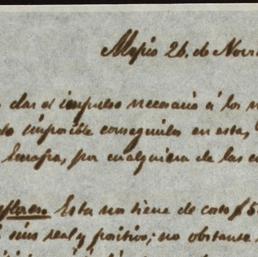 Mejico 26. de Nov
dar el impulso necesario á los
imposible conseguirlos en esta,
por cualquiera de las
Esta nos tiene de costo $5
mas real y positivo; no obstante